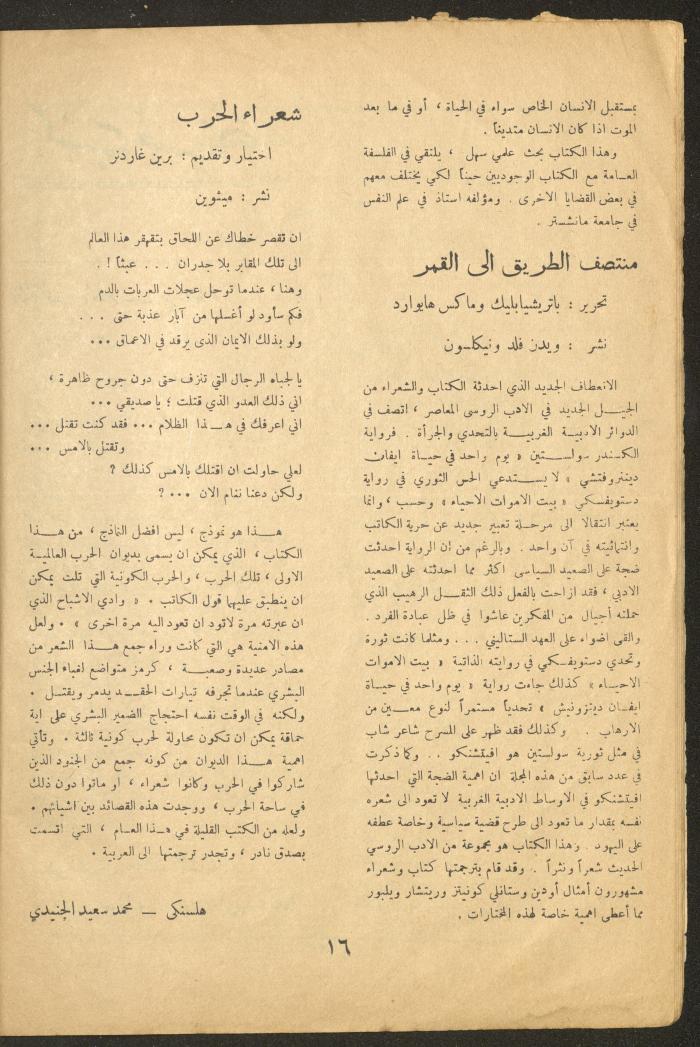 بمستقبل الانسان الخاص سواء في الحياة ، أو في ما بعد
الموت اذا كان الانسان متديناً .
وهذا الكتاب بحث علمي سهل ، يلتقي في الفلسفة
العـامة مع الكتاب الوجوديين حيناً لكي يختلف معهم
في بعض القضايا الاخرى . ومؤلفه استاذ في علم النفس
في جامعة مانشستر .
منتصف الطريق الى القمر
تحرير : باتريشيابليك وماكس هايوارد
نشر : ويدز فلد ونيكلسون
الانعطاف الجديد الذي احدثة الكتاب والشعراء من
الجيـــل الجديد في الادب الروسي المعاصر ، اتصف في
الدوائر الادبيـة الغربيـة بالتحدي والجرأة . فرواية
الكسندر سولستين « يوم واحد في حيـاة ايفان
دينزوفتشي » لا يستدعي الحس الثوري في رواية
دستويفسكي « بيت الاموات الاحياء » وحسب ، وانما
يعتبر انتقالا الى مرحـلة تعبير جديد عن حرية الكاتب
وانتمائيته في آن واحد . وبالرغم من إن الرواية احدثت
ضجة على الصعيد السياسى اكثر مما احدثته على الصعيد
الادبي ، فقد ازاحت بالفعل ذلك الثقـل الرهيب الذي
حملته أجيال من المفكرين عاشوا في ظل عبادة الفرد .
والقى اضواء على العهد الستاليني . . . ومثلما كانت ثورة
وتحدي دستويفسكي في روايته الذاتية « بيت الاموات
الاحيـاء » كذلك جاءت رواية « يوم واحد في حيـاة
ايفـان دينزونيش » تحدياً مستمراً لنوع معـين من
الارهاب . وكذلك فقد ظهر على المسرح شاعر شاب
في مثل ثورية سولستين هو افيتشنكو . . وكما ذكرت
في عدد سابق من هذه المجلة ان اهمية الضجة التي احدثها
افيتشنكو في الاوساط الادبية الغربية لا تعود الى شعره
نفسه بمقدار ما تعود الى طرح قضية سياسية وخاصة عطفه
على اليهود . وهذا الكتاب هو مجموعة من الادب الروسي
الحديث شعراً ونثراً . وقد قام بترجمتها كتاب وشعراء
مشهورون أمثال أودين وستانلي كونيتز وريتشار ويلبور
مما أعطى اهمية خاصة لهذه المختارات .
شعراء الحرب
اختيار وتقديم : برين غاردنر
نشر : ميثوين
ان تقصر خطاك عن اللحاق بتقهقر هذا العالم
الى تلك المقابر بلا جدران . . . عبثاً ! .
وهنا ، عندما توحل عجلات العربات بالدم
فكم سأود لو أغسلها من آبار عذبة حتى . . .
ولو بذلك الايمان الذى يرقد في الاعماق . . .
يا لجباه الرجال التي تنزف حتى دون جروح ظاهرة ،
اني ذلك العدو الذي قتلت ؛ يا صديقي . . .
اني اعرفك في هـــذا الظلام . . . فقد كنت تقتل . . .
وتقتل بالامس . . .
لعلي حاولت ان اقتلك بالامس كذلك ?
ولكن دعنا ننام الان . . . ?
هــذا هو نموذج ، ليس افضل النماذج ، من هــذا
الكتاب ، الذي يمكن ان يسمى بديوان الحرب العالميـة
الاولى ، تلك الحرب ، والحرب الكونية التي تلت يمكن
ان ينطبق عليهما قول الكاتب . « وادي الاشباح الذي
ان عبرته مرة لاتود ان تعود اليه مرة اخرى » . ولعل
هذه الامنية هي التي كانت وراء جمع هــذا الشعر من
مصادر عديدة وصعبــة ، كرمز متواضع لغباء الجنس
البشري عندما تجرفه تيارات الحقــد يدمر ويقتــل .
ولكنه في الوقت نفسه احتجاج الضمير البشري على اية
حماقة يمكن ان تكون محاولة لحرب كونية ثالثة . وتأتي
اهمية هــذا الديوان من كونه جمع من الجنود الذين
شاركوا في الحرب وكانوا شعراء ، او ماتوا دون ذلك
في ساحة الحرب ، ووجدت هذه القصائد بين اشيائهم .
ولعله من الكتب القليلة في هــذا العــام ، التي اتسمت
بصدق نادر ، وتجدر ترجمتها الى العربية .
هلسنكى — محمد سعيد الجنيدي
١٦